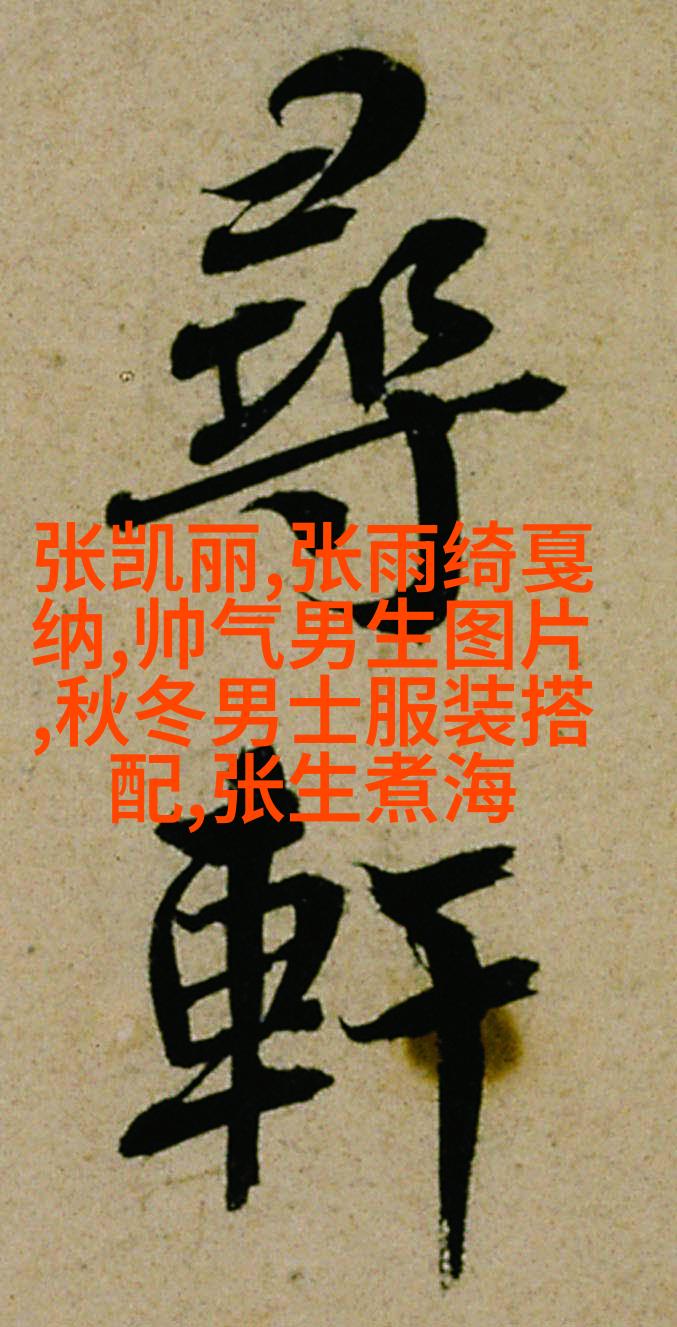 尋
軒
张凯丽,张雨绮戛
纳,帅气男生图片
,秋冬男士服装搭
配,张生煮海